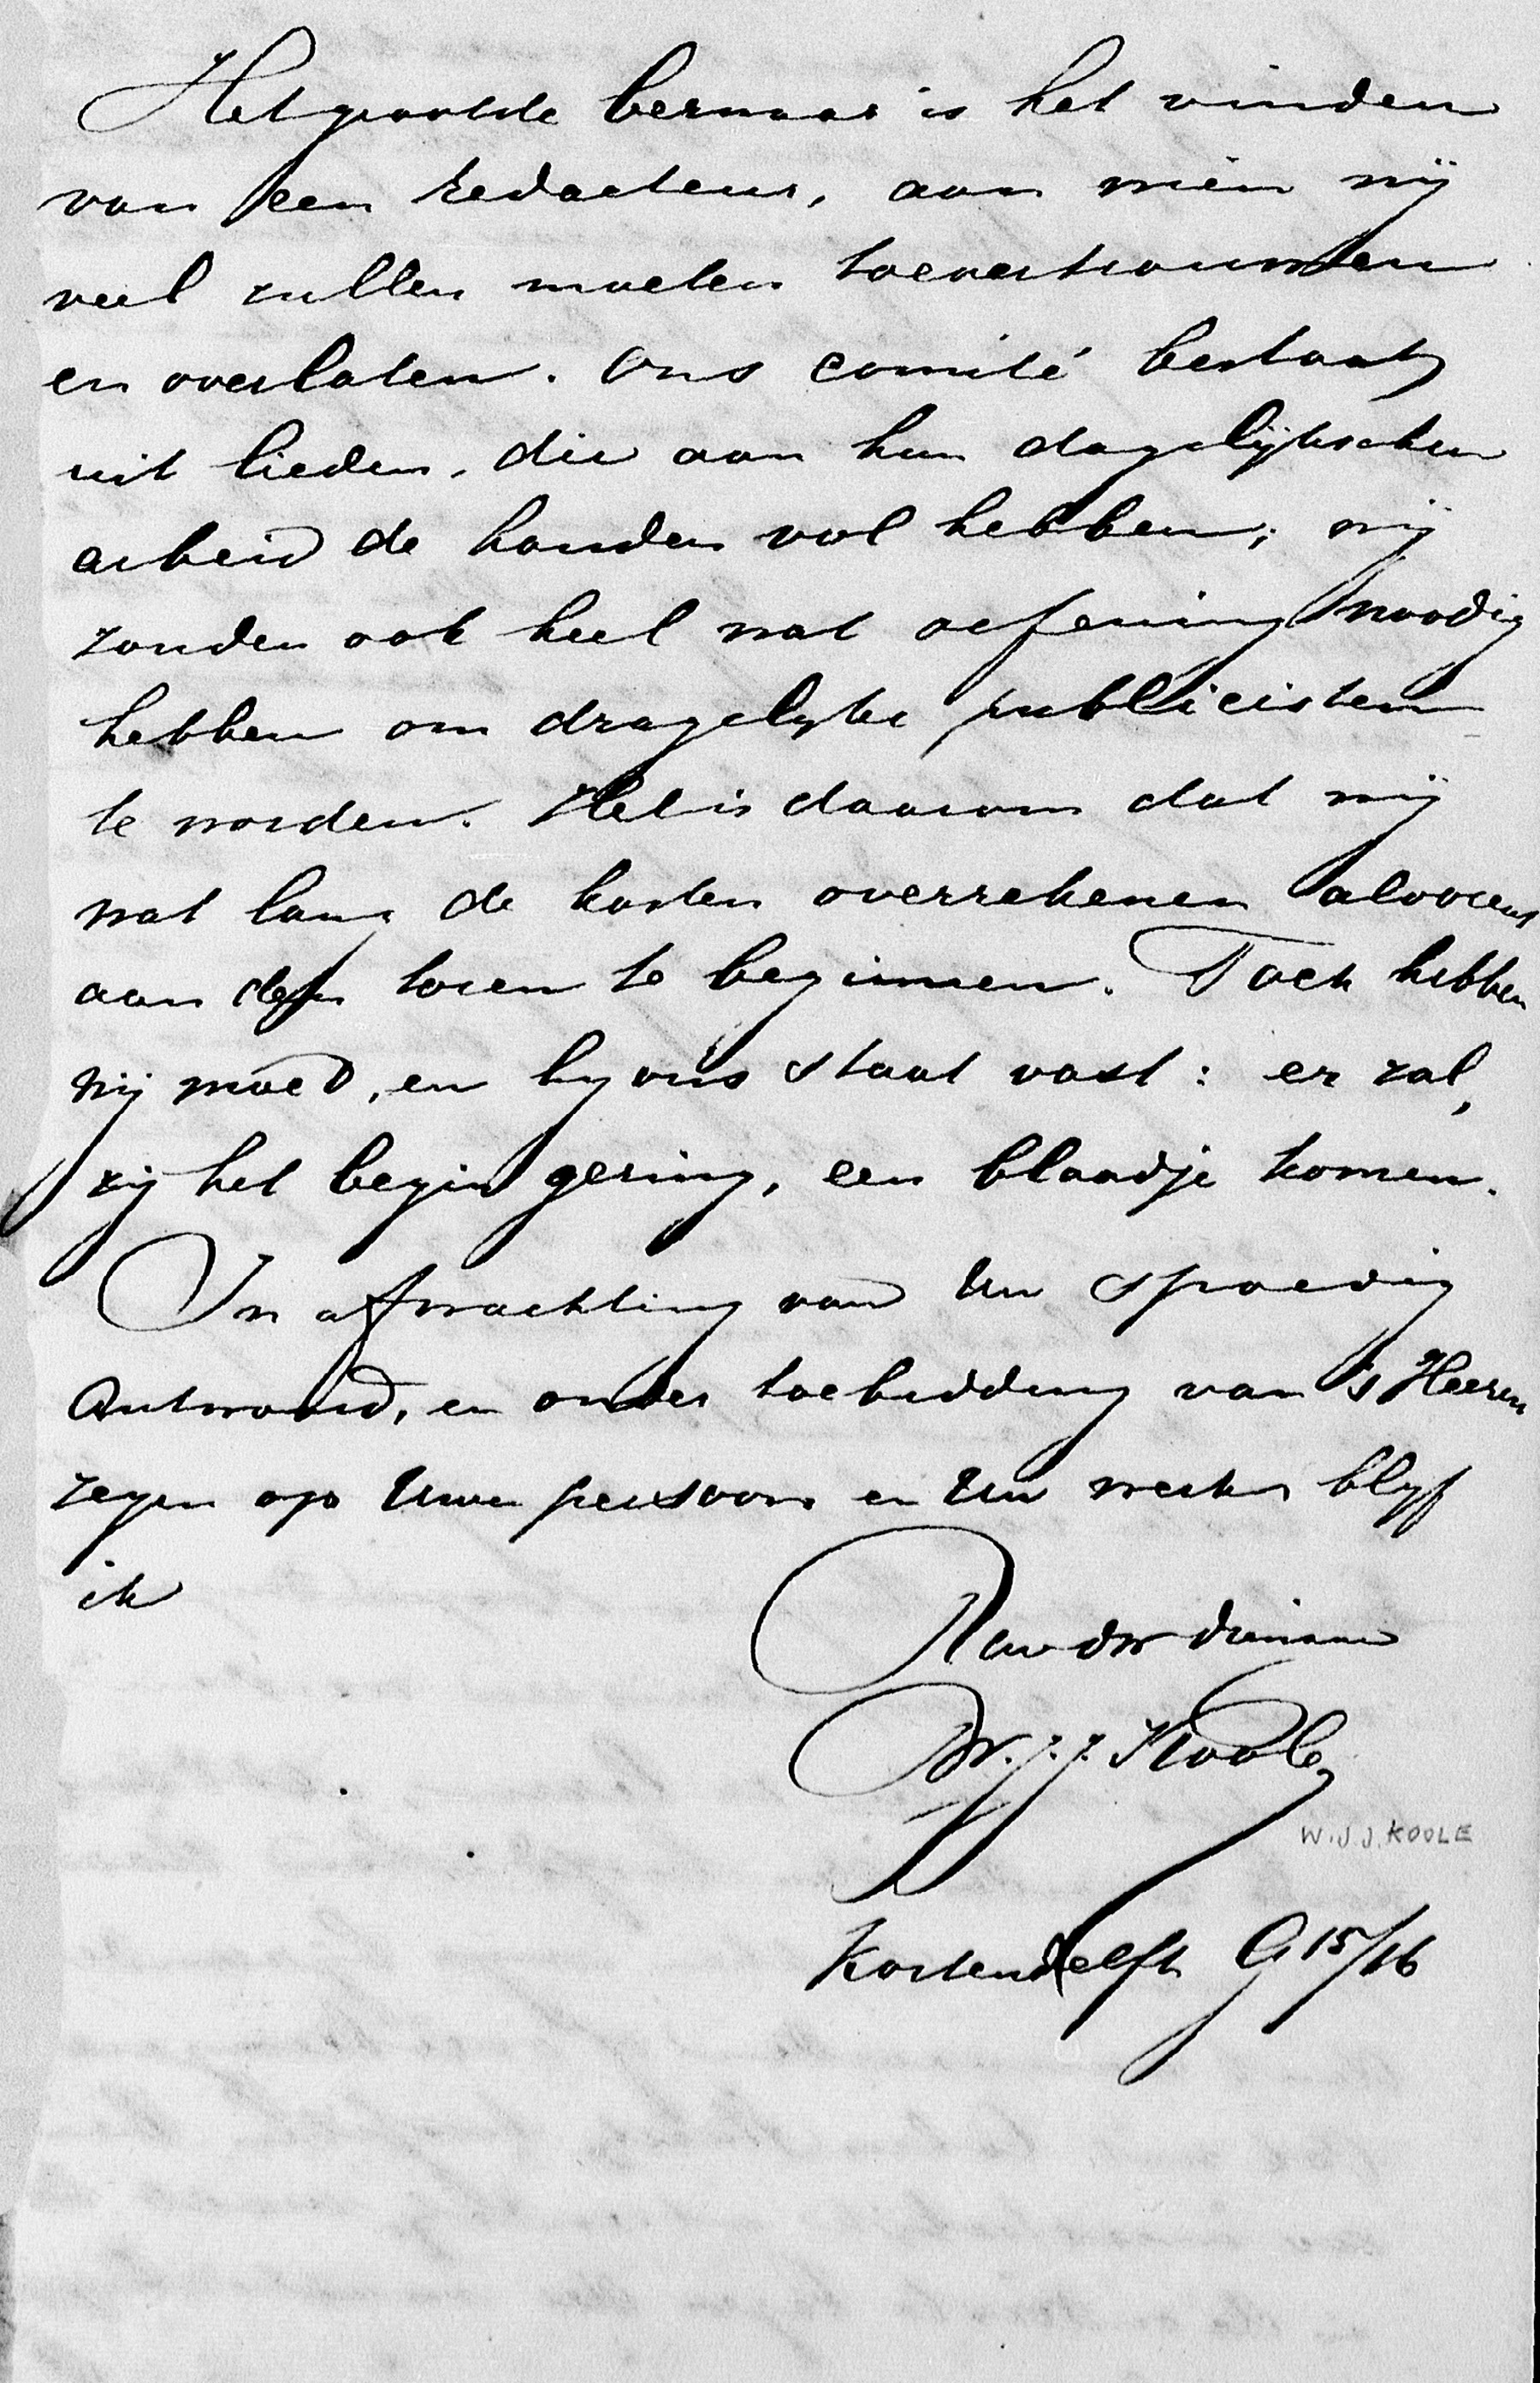 Het grootste bezwaar is het vinden
van een redacteur, aan wien wij
veel zullen moeten toevertrouwen
en overlaten. Ons comité bestaat
uit lieden, die aan hun dagelijkschen
arbeid de handen vol hebben; wij
zouden ook heel wat oefening noodig
hebben om dragelyke publicisten
te worden. Het is daarom dat wij
wat lang de kosten overrekenen alvorens
aan den toren te beginnen. Toch hebben
wij moed, en by ons staat vast: er zal,
zij het begin gering, een blaadje komen.
In afwachting van Uw spoedig
Antwoord, en onder toebidding van 's Heeren
zegen op Uwen persoon en Uw werk blyf
ik
Uw dw dienaar
W. J. J. Koole
W.J.J. KOOLE
15/16